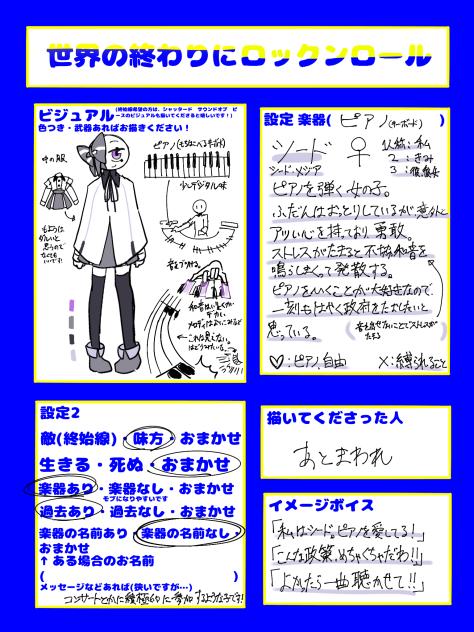 世界の終わりにロックンロール
ビジュアル
(終始線希望の方は、シャッタード サウンドオブ ピースのビジュアルも描いてくださると嬉しいです!)
色つき・武器あればお描きください!
中の服
ピアノ(そらにうべるキボド)
少しデジタル味
音をブツける
設定 楽器( ピアノ(キーボード) )
シード ♀
シード・メシア
1人称:私
2:きみ
3:彼、彼女
ピアノを弾く女の子。
ふだんはおっとりしているが、意外と
アツい心を持っており、勇敢。
ストレスがたまると不協和音を
鳴らしまくって発散する。
ピアノをひくことが大好きなので、
一刻もはやく政府をたおしたいと
思っている。
♡:ピアノ、自由
×:縛られること
設定2
敵(終始線)・味方・おまかせ
生きる・死ぬ・おまかせ
楽器あり・楽器なし・おまかせ
モブになりやすいです
過去あり・過去なし・おまかせ
楽器の名前あり・楽器の名前なし・
おまかせ
↑ある場合のお名前
( )
メッセージなどあれば(狭いですが…)
コンサートとかに積極的に参加するような子です!
描いてくださった人
あとまわれ
イメージボイス
「私はシード。ピアノを愛してる!」
「こんな政策、めちゃくちゃだわ!!」
「よかったら一曲聴かせて!!」